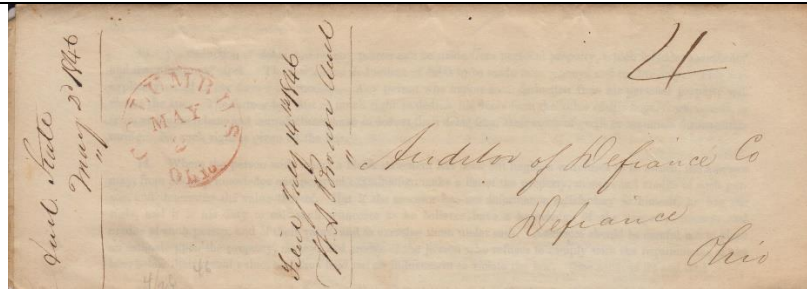 Aud. State
May 2d 1846
COLUMBUS
MAY
2
OHIO
Filed July 14th 1846
W. A. Brown Aud
4
Auditor of Defiance Co
Defiance
Ohio